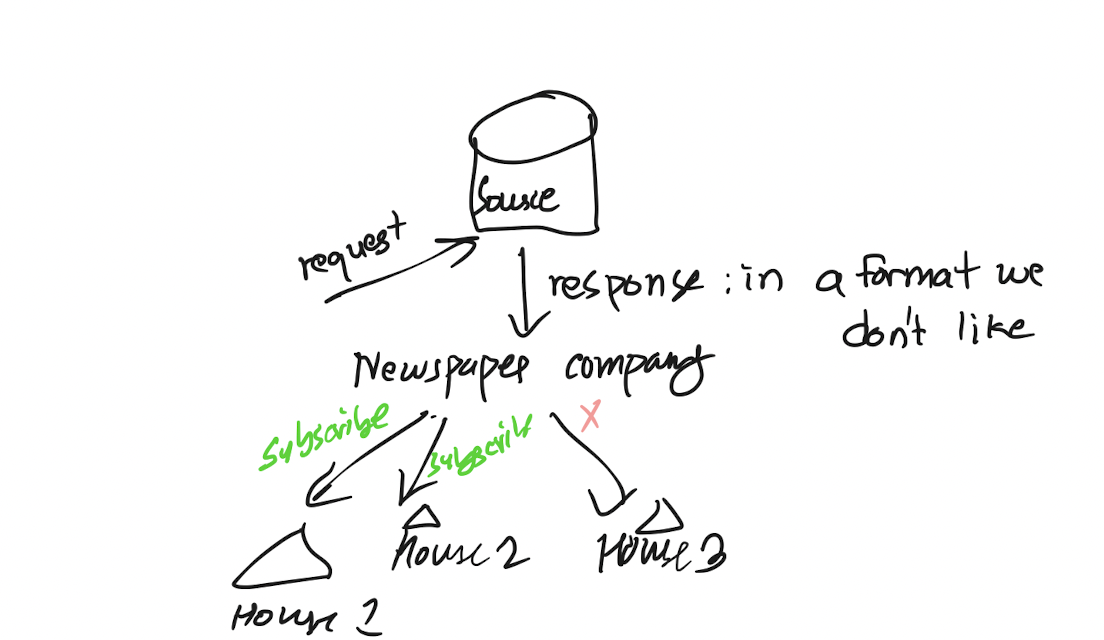 Source
request
response : in a format we
don't like
Newspaper company
Subscribe
subscribe
X
House 2
House 3
House 1